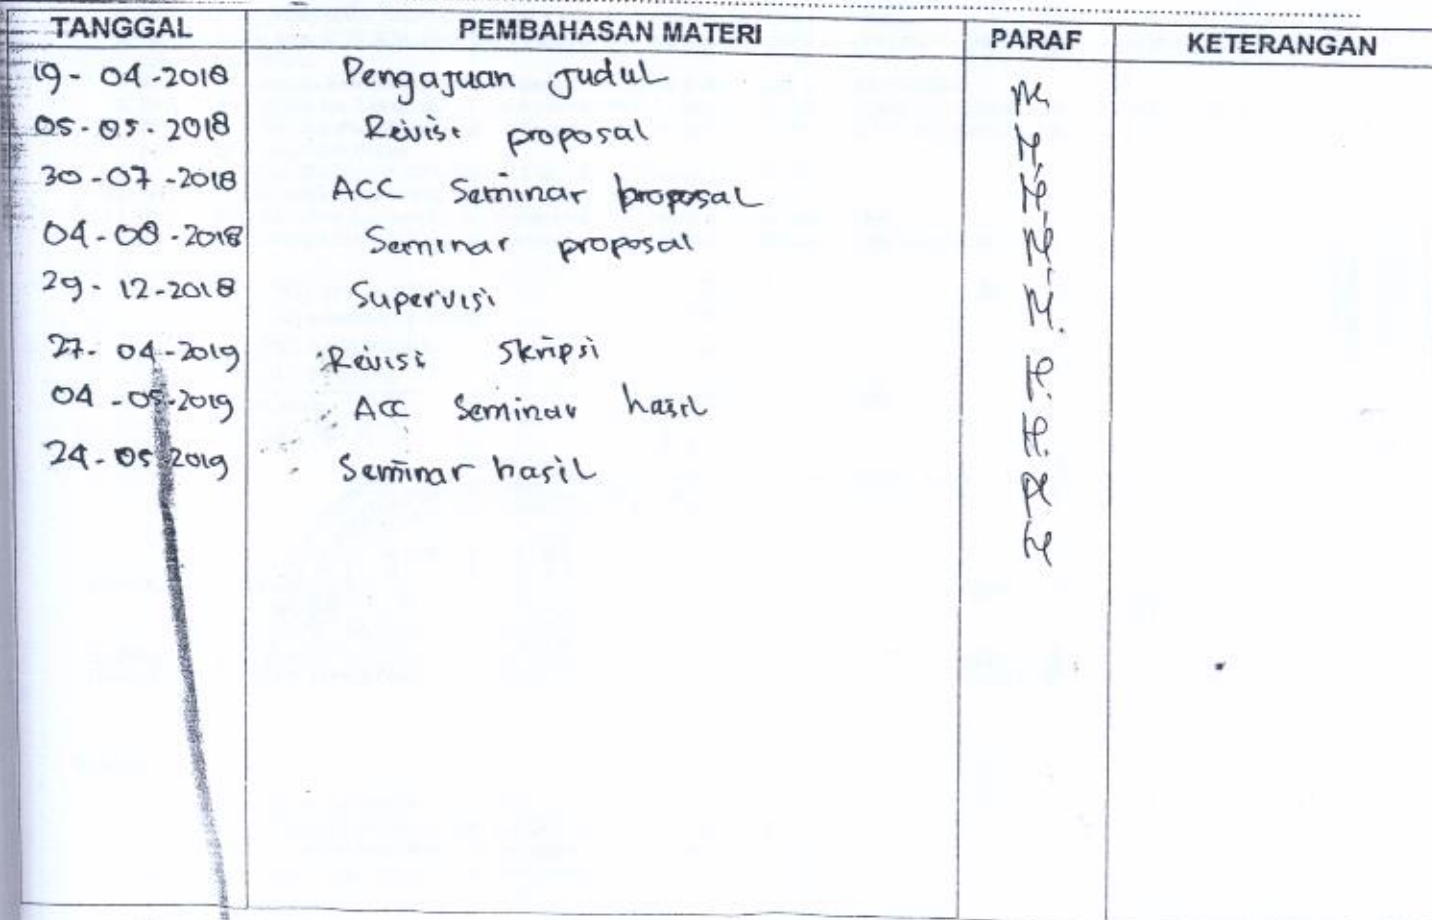 TANGGAL PEMBAHASAN MATERI PARAF KETERANGAN
19-04-2018 Pengajuan Judul
05-05-2018 Revisi proposal
30-07-2018 ACC Seminar proposal
04-08-2018 Seminar proposal
29-12-2018 Supervisi
27-04-2019 Revisi Skripsi
04-05-2019 ACC Seminar hasil
24-05-2019 Seminar hasil